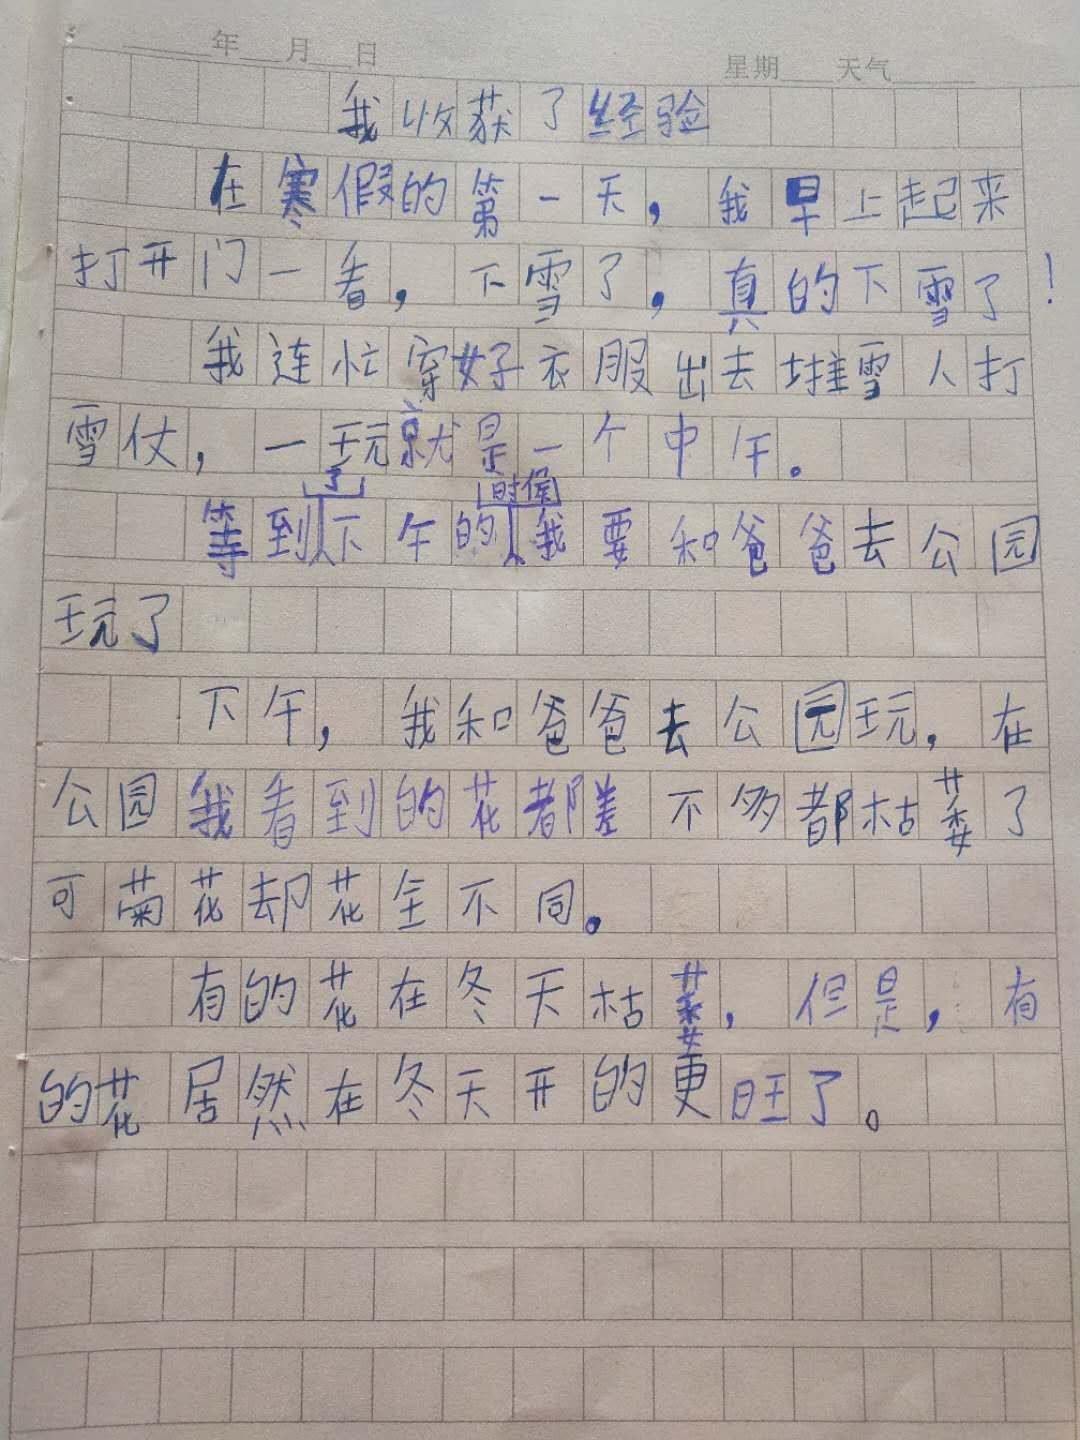 年 月 日 星期 天气
我收获了经验
在寒假的第一天，我早上起来
打开门一看，下雪了，真的下雪了！
我连忙穿好衣服出去堆雪人打
雪仗，一玩就是一个中午。
等到了下午的时候我要和爸爸去公园
玩了
下午，我和爸爸去公园玩，在
公园我看到的花都差不多都枯萎了
可菊花却花全不同。
有的花在冬天枯萎，但是，有
的花居然在冬天开的更旺了。